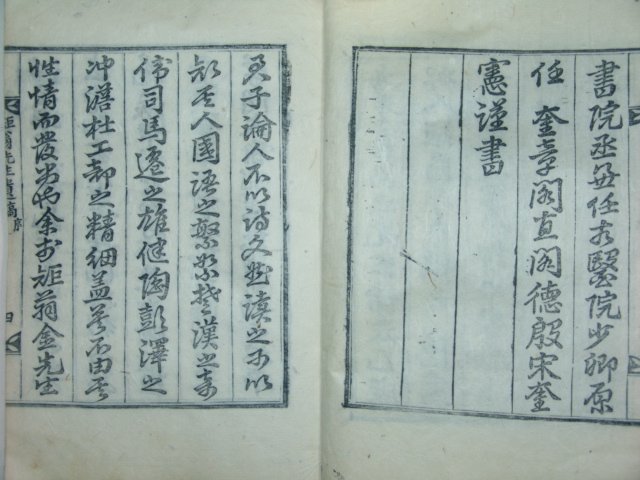 書院丞兼任太醫院少卿原
任 奎章閣直閣德殷宋奎
憲謹書
君子論人不以詩文然讀之可以
知其人國語之繁絮楚漢之奇
偉司馬遷之雄健陶彭澤之
冲澹杜工部之精細盖莫不由其
性情而發焉余於矩翁金先生
矩翁先生遺稿序
四